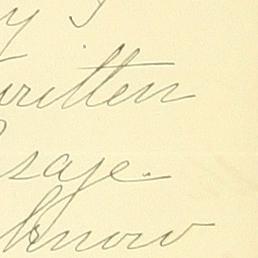 y I
written
saye.
know